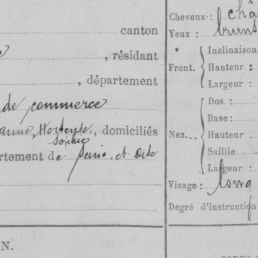 canton
, résidant
, département
de commerce
Hortense, domiciliés
Sophie
artement de Seine et Oise
N.
Cheveux: châ
Yeux: bruns
Inclinaison
Front. Hauteur:
Largeur:
Dos:
Base:
Nez... Hauteur
Saillie
Largeur:
Visage: long
Degré d'instruction